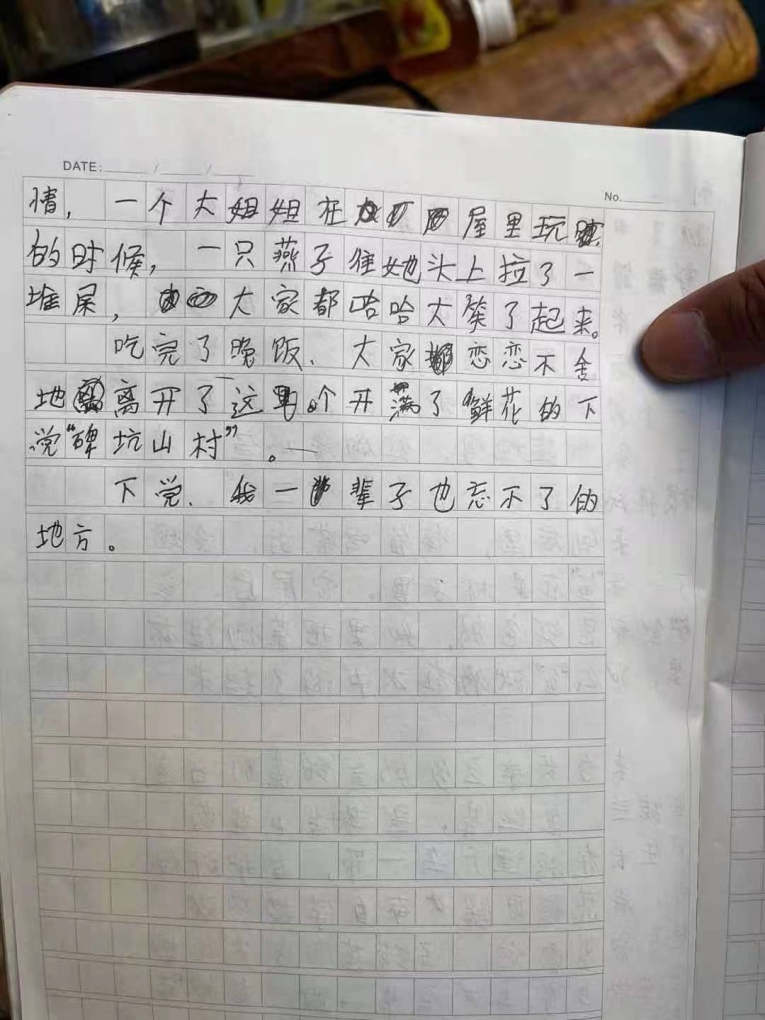 DATE: ____ / ____ / ____
No. ____
情，一个大姐姐在屋里玩
的时候，一只燕子往她头上拉了一
堆屎，大家都哈哈大笑了起来。
吃完了晚饭、大家都恋恋不舍
地离开了这个开满了鲜花的下
党“碑坑山村”。
下党、我一辈子也忘不了的
地方。